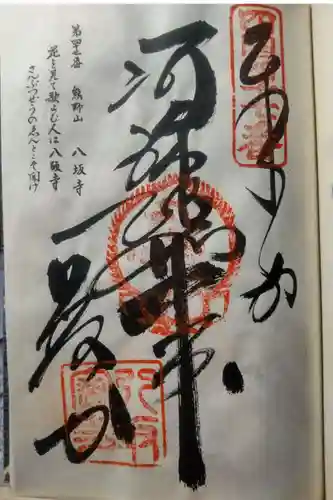 奉納
阿弥陀如来
八坂寺
第四十七番 熊野山 八坂寺
花を見て歌よむ人は八坂寺
さんぶつぜうのゑんとこそ聞け